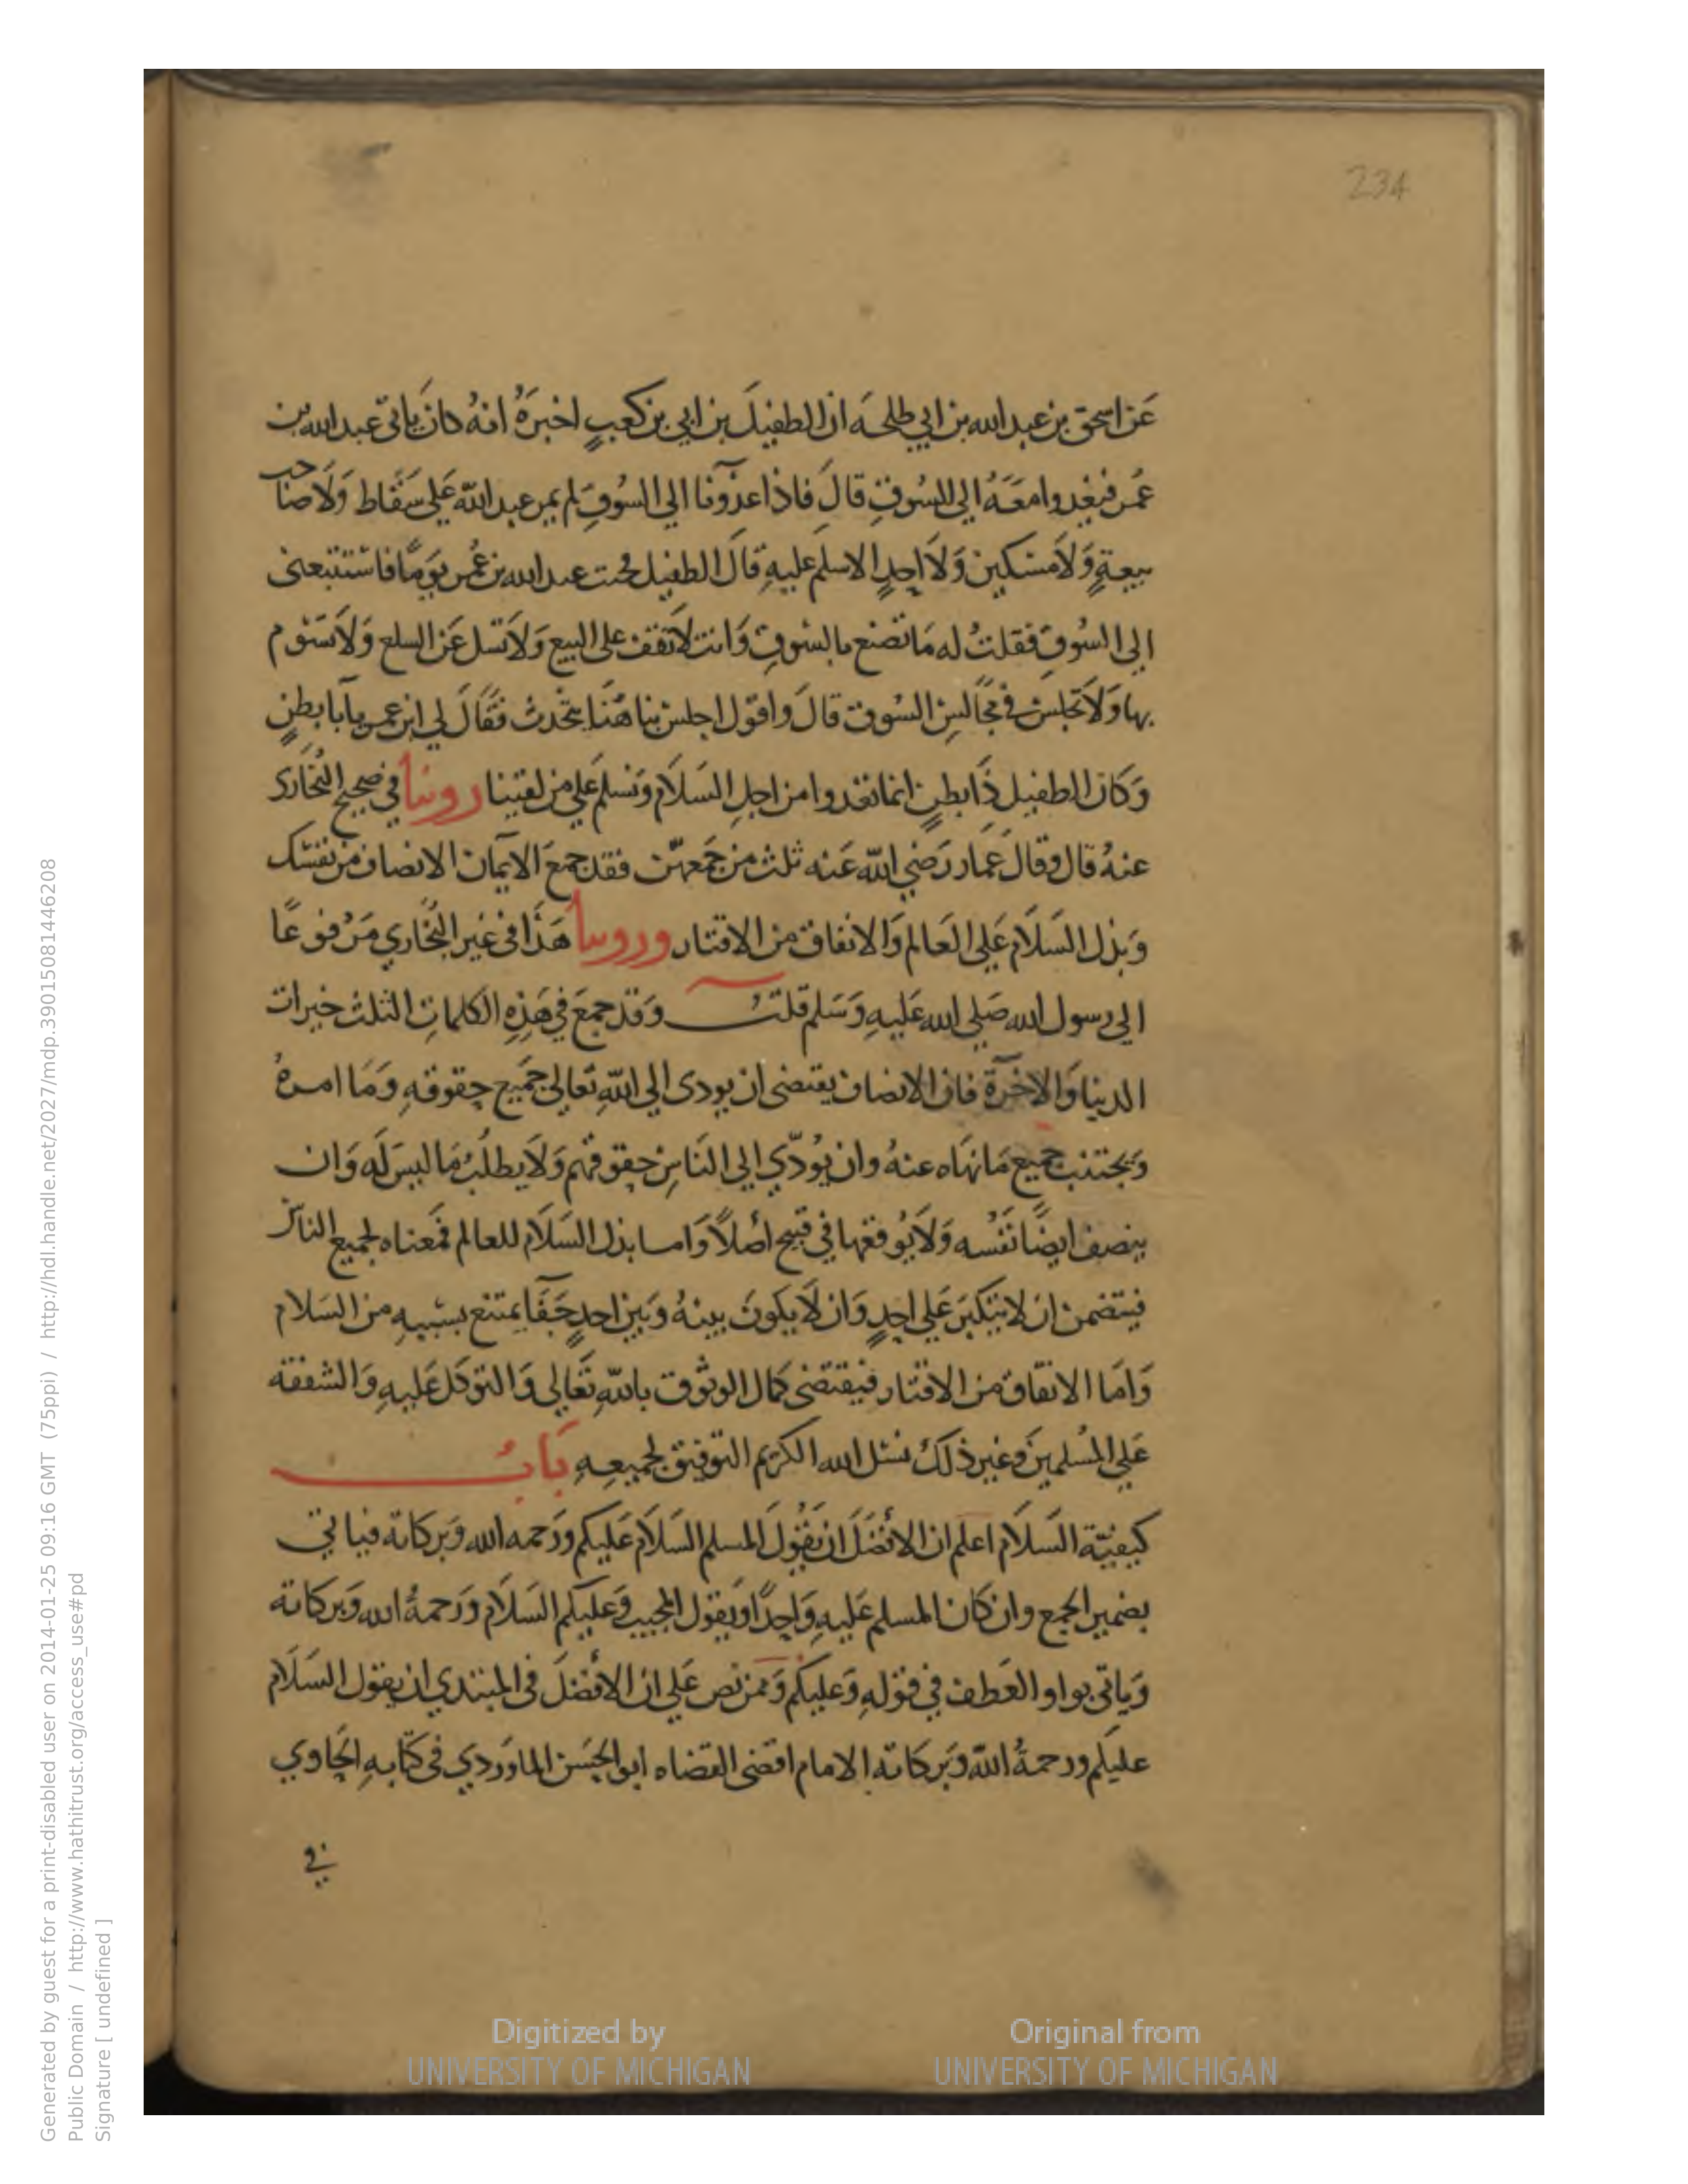 234
عَن اسحق بن عبد الله بن ابي طلحَه ان الطفيلَ بن ابي بن كعبٍ اخبرَهُ انهُ كانَ ياتى عبد الله بن
عُمر فيغدوا معَهُ الي السُوقِ قالَ فاذا غدَونا الي السُوقِ لم يمر عبد اللّه عَلي سَقَاط وَلَا صاحب
بيعةٍ وَلاَ مسَكين وَلاَ احدٍ الا سلم عليهِ قالَ الطفيل فجئت عبد الله بن عُمر يَومًا فاستتبعنى
الي السُوقِ فقلتُ له مَا تصنع بالسُوقِ وَانت لاَ تقف على البيع وَلاَ تسل عَن السلع وَلاَ تسَوم
بها وَلاَ تجلس في مجَالسِ السُوق قالَ واقول اجلس بنا هُنَا نتحَدث فقَالَ لي ابن عمر يا ابا بطنٍ
وَكان الطفيل ذَا بطنٍ انما نغدوا من اجلِ السَلَام وَنسلم عَلي من لقينا روينا في صحيح البُخارى
عنهُ قال وقال عَمار رَضي اللّه عَنه ثلث من جَمعهن فقد جمعَ الايمان الانصاف من نفسك
وَبذل السَلَام عَلي العَالم وَالانفاق من الاقتار وروينا هَذا في غَير البُخاري مَرفوعًا
الي رسول الله صَلي الله عَليهِ وَسَلم قلتُ وَقد جمعَ في هَذِهِ الكلماتِ الثلث خيرات
الدنيا وَالاخرَة فان الانصاف يقتضى ان يودى الي اللّهِ تعَالي جَميع حقوقهِ وَمَا امرهُ
وَيجتنب جميع مَا نهَاه عنهُ وان يُودّي الي النَاسِ حقوقهم وَلاَ يطلبُ مَا ليسَ لَه وَان
ينصف ايضًا نفُسه وَلاَ يُوقعها في قبيح اصلاً وَاما بذل السَلَام للعالم فمَعناه لجميع الناس
فيتضمن ان لا يتكبرَ عَلي احدٍ وَان لاَ يكونَ بينهُ وَبين احدٍ جَفَا يمتنع بسَببهِ من السَلام
وَامَا الانفاق من الاقتار فيقتضى كمال الوثوق باللّهِ تعَالي وَالتوكل عَليهِ وَالشفقة
عَلي المُسلمينَ وَغير ذلك نسَل الله الكريم التوفيق لجميعهِ بَابُ
كيفيّة السَلَام اعلم ان الافضَل ان يَقُولَ المسلم السَلَام عَليكم ورَحمه الله وَبركاته فياتي
بضمير الجمع وان كان المسلم عَليهِ وَاحِدًا وَيقول المجيب وَعليكم السَلَام وَرَحمةُ الله وَبركاته
وَياتى بواو العَطف في قولهِ وَعليكم وَممن نص عَلي ان الافضلَ في المبتدي ان يقول السَلَام
عليكم ورحمةُ اللّه وَبركاته الامام اقضى القضاه ابو الحَسن الماوَردي في كتابهِ الحَاوي
في
Digitized by
UNIVERSITY OF MICHIGAN
Original from
UNIVERSITY OF MICHIGAN
Generated by guest for a print-disabled user on 2014-01-25 09:16 GMT (75ppi) / http://hdl.handle.net/2027/mdp.39015081446208
Public Domain / http://www.hathitrust.org/access_use#pd
Signature [ undefined ]